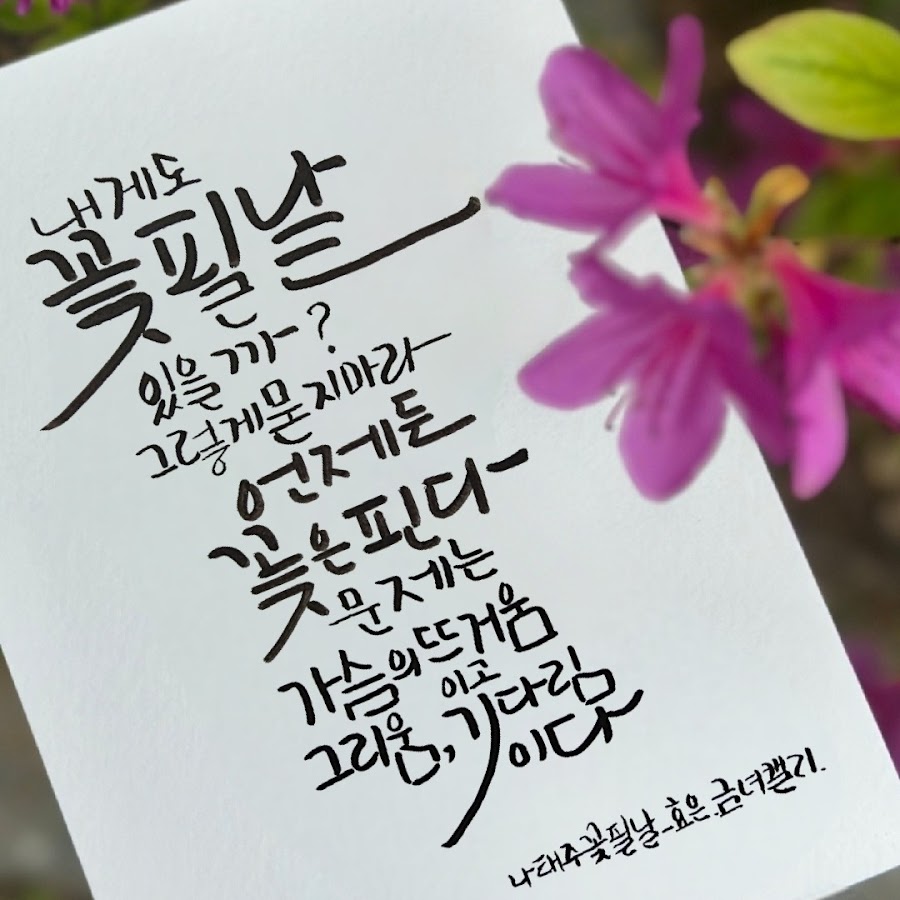 내게도
꽃필날
있을까?
그렇게묻지마라
언제든
꽃은핀다
문제는
가슴의뜨거움
이고
그리움,기다림
이다
나태주꽃필날_효은.금녀캘리.